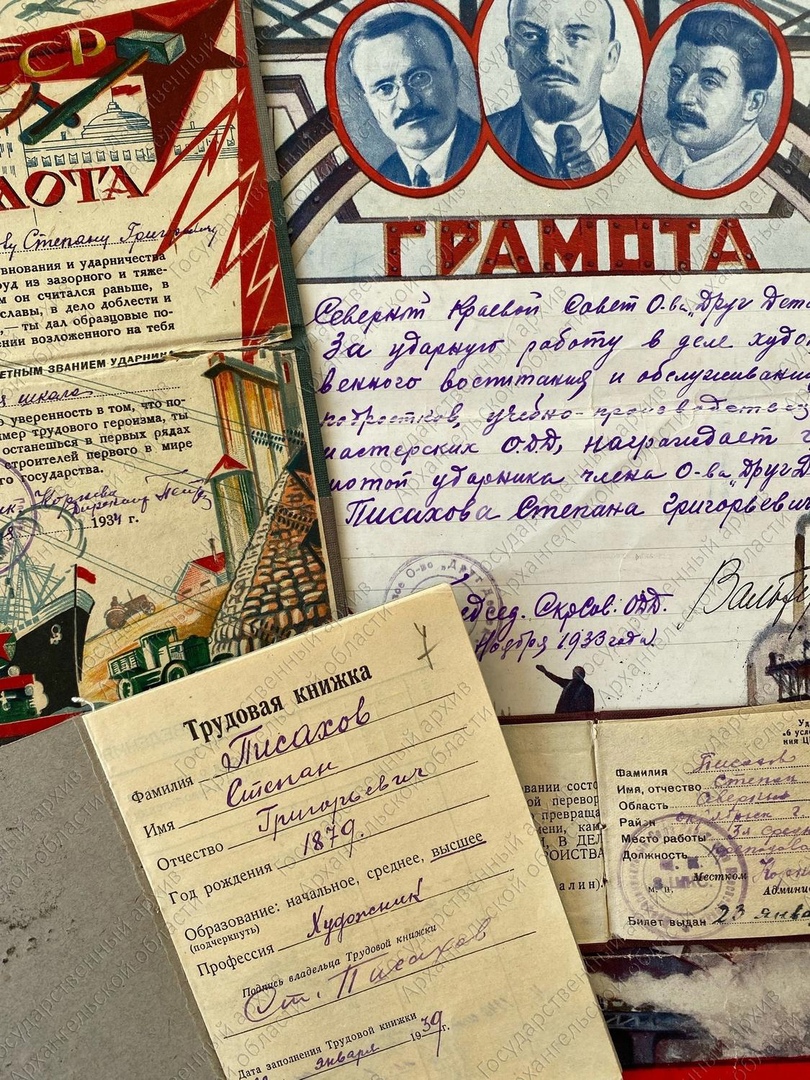 СР
МОТА
ву Степану Григорьевичу
внования и ударничества
руд из зазорного и тяже-
м он считался раньше, в
славы, в дело доблести и
,— ты дал образцовые по-
нении возложенного на тебя
ЕТНЫМ ЗВАНИЕМ УДАРНИКА
я школа
о уверенность в том, что по-
мер трудового героизма, ты
останешься в первых рядах
строителей первого в мире
го государства.
1934 г.
ГРАМОТА
Северный Краевой Совет О-ва „Друг Дете
За ударную работу в деле худо
венного воспитания и обслуживани
подростков, учебно-производстве
мастерских ОДД, награждает г
мотой ударника члена О-ва „Друг Д
Писахова Степана Григорьевич
едсед. Скрсов. ОДД.
Ноября 1933 года
Трудовая книжка
Фамилия Писахов
Имя Степан
Отчество Григорьевич
Год рождения 1879.
Образование: начальное, среднее, высшее
(подчеркнуть)
Профессия Художник
Подпись владельца Трудовой книжки
Ст. Писахов
Дата заполнения Трудовой книжки
января 1939 г.
вании состо
ой перевор
превраща
мени, как
, В ДЕЛ
РОЙСТВА
алин).
Уд
„6 усло
ния Ц
Фамилия Писахов
Имя, отчество Степан
Область Северный
Район
Место работы
Должность
Местком
М. П.
Админи
Билет выдан 23 янва
Государственный архив
Архангельской области